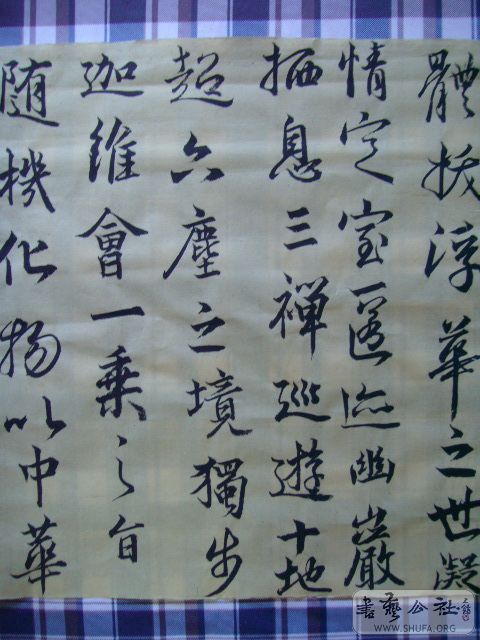 體拔浮華之世凝
情定室匿迹幽巖
栖息三禪巡遊十地
超六塵之境獨步
迦維會一乘之旨
随機化物以中華
書藝公社
WWW.SHUFA.ORG